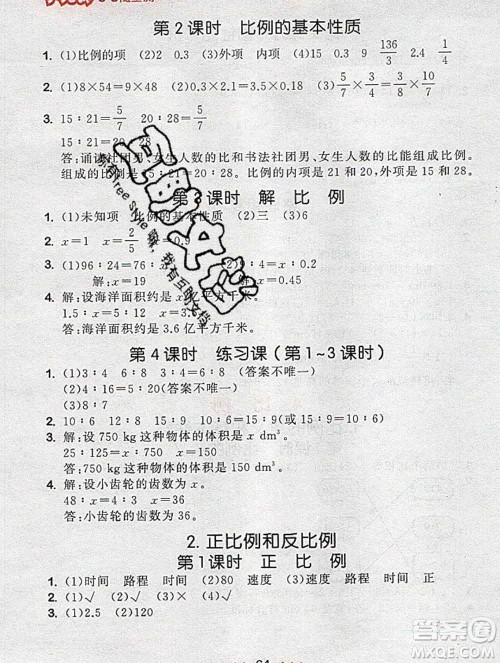 第2课时 比例的基本性质
1. (1)比例的项 (2)2 0.3 (3)外项 内项 (4)15 0.3 9 136/3
2. (1)8×54= (2)0.3×2.1=3.5×0.18 (3)
3. 15∶21=5/7
15∶21=20∶28
答:诵读社团男、女生人数的比和书法社团男、女生人数的比能组成比例。
组成的比例是15∶21=20∶28。比例的内项是21和20,外项是15和28。
第3课时 解比例
1. (1)未知项 比例的基本性质 (2)三 (3)6
2. x=1 x=2/5 x=0.9
3. (1)96∶24=76∶x (2)
解:x=19 解:x=0.45
4. 解:设海洋面积约是x亿平方千米。
1.5∶x=5∶12
答:海洋面积约是3.6亿平方千米。
第4课时 练习课(第1~3课时)
1. (1)3∶4 6∶8(答案不唯一)
(2)4∶16=5∶20(答案不唯一)
2. 10∶6 15∶9 12∶8 6∶4
3. 解:设750 kg这种物体的体积是x dm³。
25∶10=750∶x x=300
答:750 kg这种物体的体积是300 dm³。
4. 解:设小齿轮的齿数为x。
48∶x=4∶3 x=36
答:小齿轮的齿数为36。
2. 正比例和反比例
第1课时 正比例
1. (1)时间 路程 时间 (2)80 速度 (3)速度 路程 时间 正
2. (1)√ (2)√ (3)× (4)√
3. (1)2.5 (2)120
答案圈